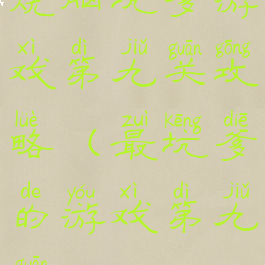 戏第九关攻
xì dì jiǔ guān gōng
略（最坑爹
lüè zuì kēng diē
的游戏第九
de yóu xì dì jiǔ